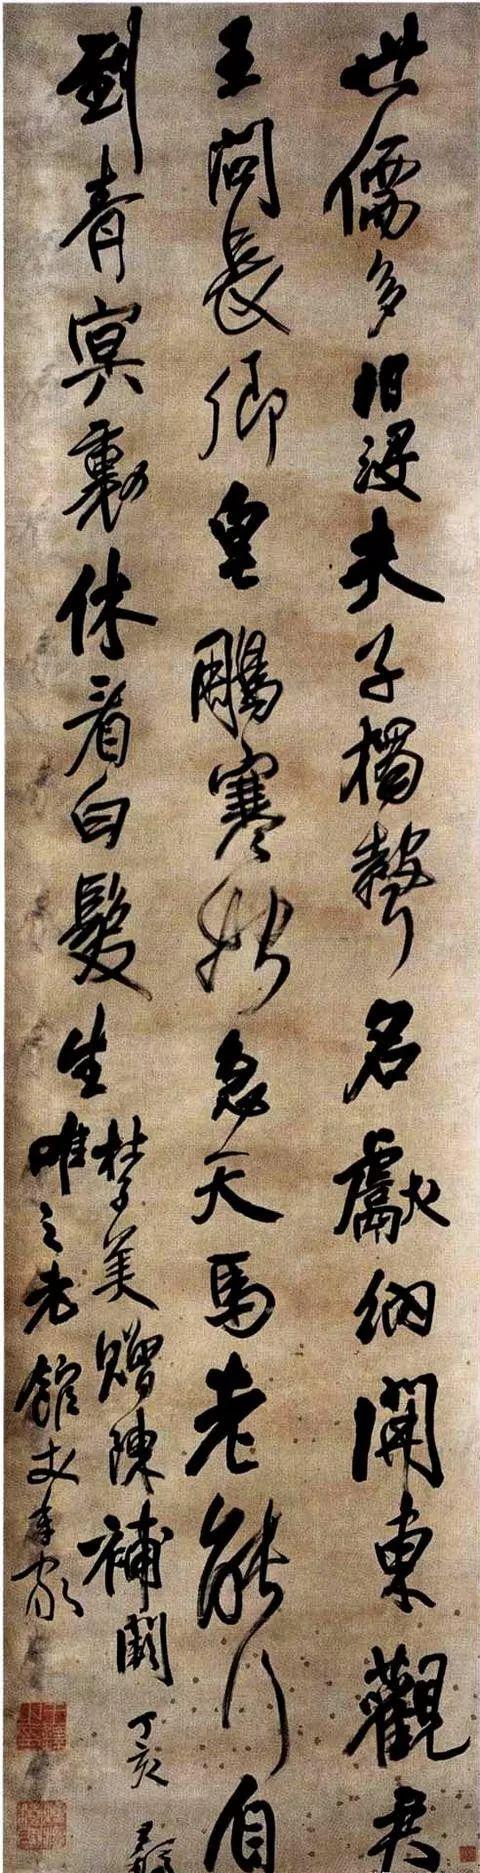 世儒多汩沒夫子獨聲名獻納開東觀君
王問長卿皂鵰寒始急天馬老能行自
到青冥裏休看白髮生
杜子美贈陳補闕 丁亥 王鐸
唯之老館丈